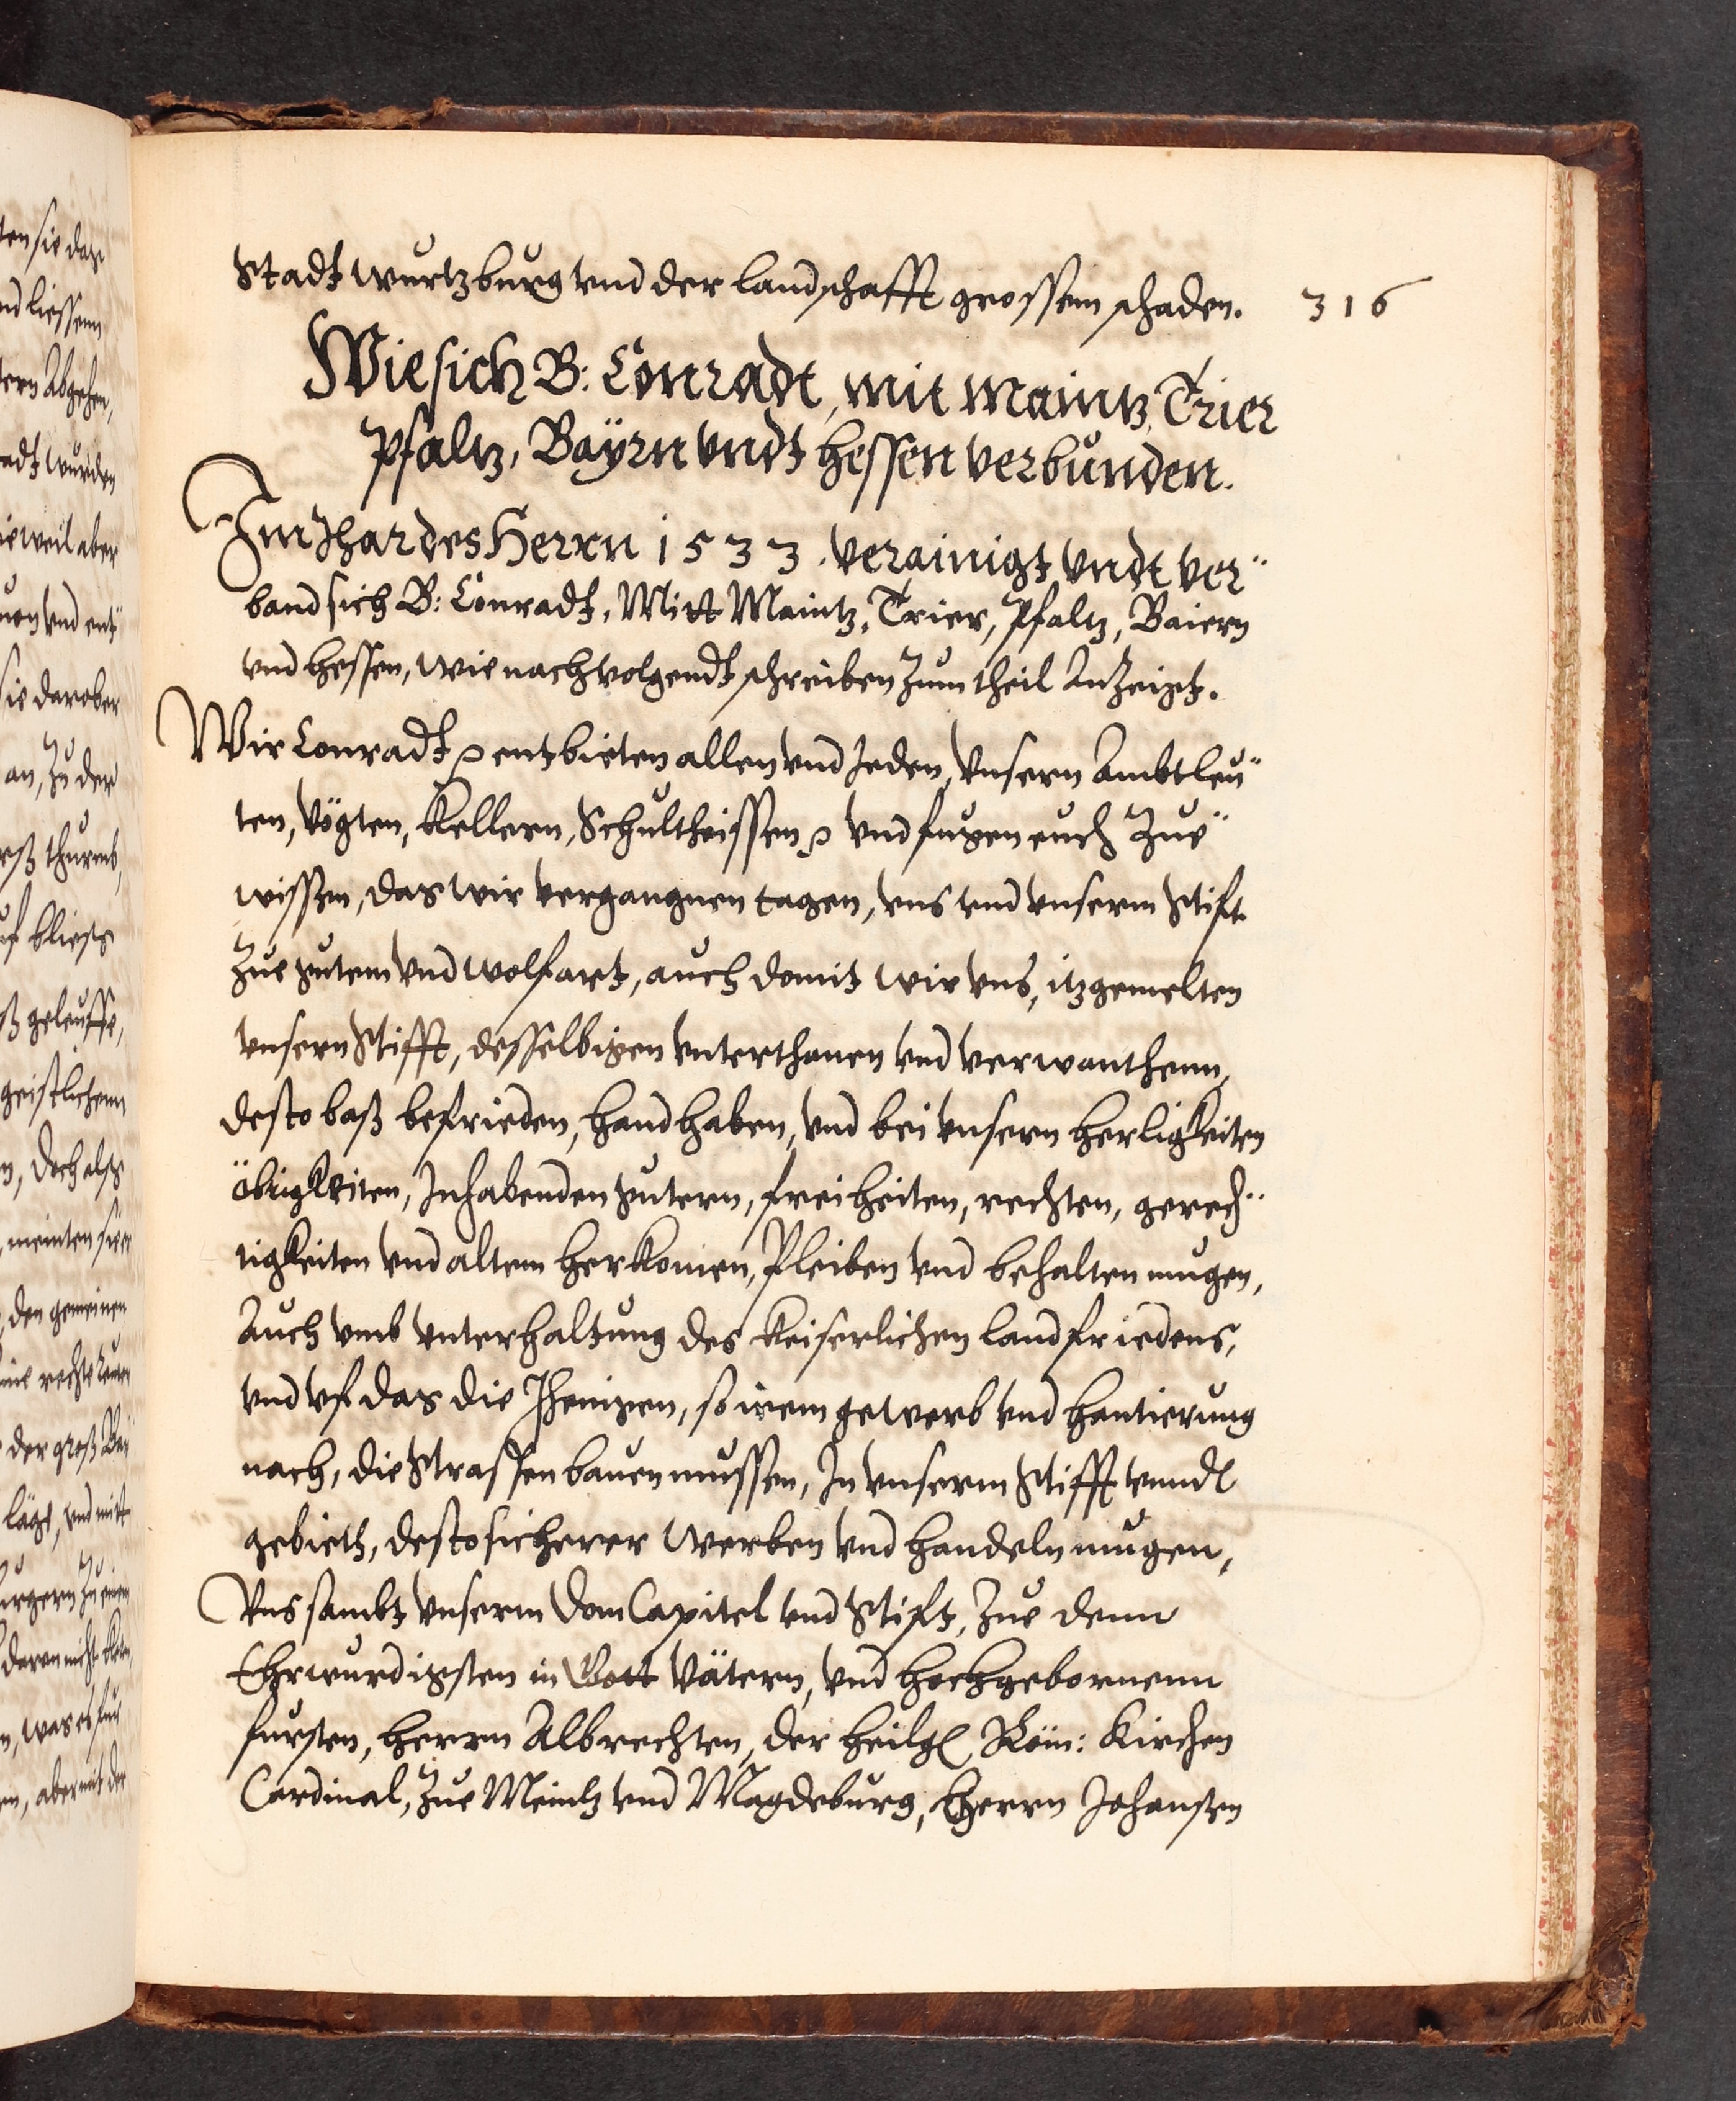 Stadt Wurtzburg vnd der landschafft grossem schaden.
316
Wie sich B: Conradt, mit Maintz, Trier
Pfaltz, Baÿrn vndt hessen verbunden.
Im Jhar des Herrn 1533. verainigt vndt ver¨
band sich B: Conradt, Mitt Maintz, Trier, Pfaltz, Baiern
vnd hessen, wie nachvolgendt schreiben zum theil Anzeigt.
Wir Conradt entbieten allen vnd Jeden, Vnsern Ambtleu¨
ten, Vögten, Kellern, Schultheissen vnd fugen euch zue¨
wissen, das wir vergangnen tagen, vns vnd vnserm Stift
zue gutem vnd wolfart, auch domit wir vns, itzgemelten
vnsern Stifft, desselbigen vnterthanen vnd verwanthenn,
desto baß befrieden, handhaben, vnd bei vnsern herligkeiten
öbrigkeiten, Inhabenden gutern, freiheiten, rechten, gerech¨
tigkeiten vnd altem herkomen, Pleiben vnd behalten mugen,
Auch vmb vnterhaltung des keiserlichen landfriedens,
vnd vf das die Jhenigen, so irem gewerb vnd hantierung
nach, die Strassen bauen mussen, In vnserm Stifft vnnd
gebieth, desto sicherer werben vnd handeln mugen,
Vns sambt vnserm Dom Capitel vnd Stift, zue denn
Ehrwurdigsten in Gott Vätern, vnd hochgebornenn
fursten, herrn Albrechten, der heilg Röm: Kirchen
Cardinal, zue Meintz vnd Magdeburg, Herrn Johansen